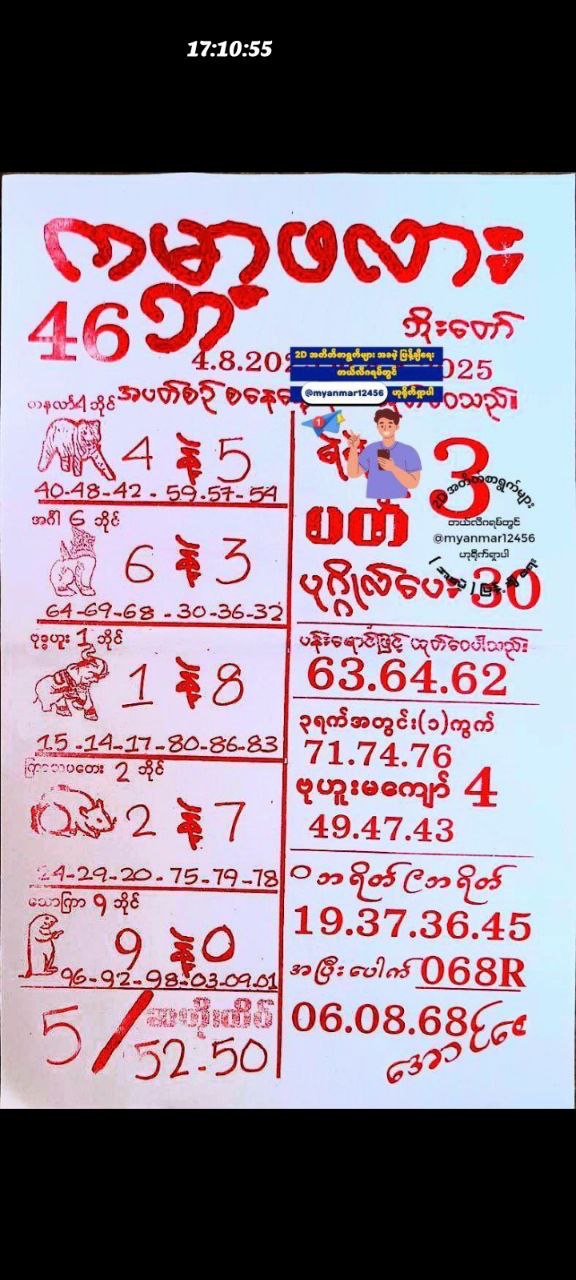 17:10:55
ကမ္ဘာ့ဖလား
46 ဘ
ဘိုးတော်
4.8.202
2025
2D အတိတ်စာရွက်များ အခမဲ့ ဖြန့်ချီရေး
တယ်လီဂရမ်တွင်
@myanmar12456 ဟုရိုက်ရှာပါ
အပတ်စဉ် စနေနေ့
တနင်္လာ 4 ဘိုင်
4 နဲ့ 5
40-48-42-59-57-54
အင်္ဂါ 6 ဘိုင်
6 နဲ့ 3
64-69-68-30-36-32
ဗုဒ္ဓဟူး 1 ဘိုင်
1 နဲ့ 8
15-14-17-80-86-83
ကြာသပတေး 2 ဘိုင်
2 နဲ့ 7
24-29-20-75-79-78
သောကြာ 9 ဘိုင်
9 နဲ့ 0
96-92-98-03-09-01
5/
52.50
1
3
ပတ်
2D အတိတ်စာရွက်များ
တယ်လီဂရမ်တွင်
@myanmar12456
ဟုရိုက်ရှာပါ
ပုဂ္ဂိုလ်ပေး 30
ပန်းရောင်ဖြင့် ထုတ်ဝေပါသည်။
63.64.62
၃ရက်အတွင်း(၁)ကွက်
71.74.76
ဗုဟူးမကျော် 4
49.47.43
၀ ဘရိတ် ၉ ဘရိတ်
19.37.36.45
အပြီးပေါက် 068R
06.08.68
အောင်ဇေ